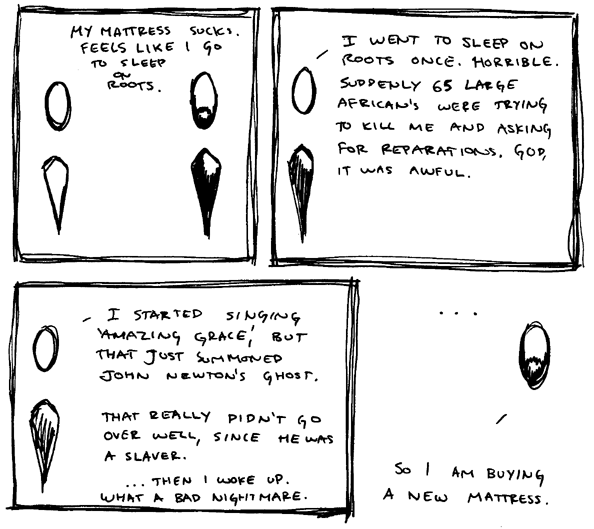 MY MATTRESS SUCKS.
FEELS LIKE I GO
TO SLEEP
ON
ROOTS.
I WENT TO SLEEP ON
ROOTS ONCE. HORRIBLE.
SUDDENLY 65 LARGE
AFRICAN'S WERE TRYING
TO KILL ME AND ASKING
FOR REPARATIONS. GOD,
IT WAS AWFUL.
I STARTED SINGING
'AMAZING GRACE', BUT
THAT JUST SUMMONED
JOHN NEWTON'S GHOST.
THAT REALLY DIDN'T GO
OVER WELL, SINCE HE WAS
A SLAVER.
...THEN I WOKE UP.
WHAT A BAD NIGHTMARE.
...
SO I AM BUYING
A NEW MATTRESS.